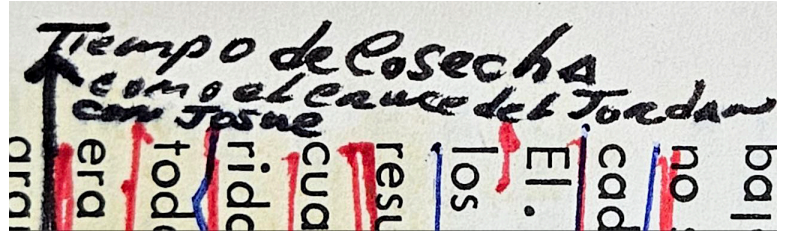 Tiempo de Cosecha
como el cruce del Jordan
con Josue
bal
no s
cad
El.
los
resu
cua
rido
todo
era
gra